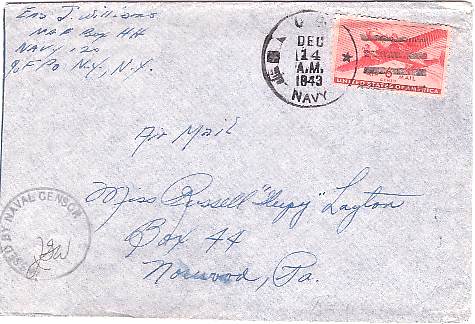 Ens J. Williams
M.O.R. Box HH
NAVY 120
℅ F.P.O. N.Y., N.Y.
U.S.
DEC
14
A.M.
1943
NAVY
6
AIR MAIL
UNITED STATES OF AMERICA
Air Mail
Miss Russell Layton
Box 44
Norwood, Pa.
PASSED BY NAVAL CENSOR